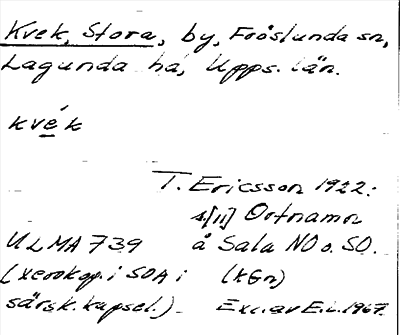 Kvek, Stora, by, Fröslunda sn,
Lagunda hd, Upps. län.
kvék
T. Ericsson 1922:
Ortnamn
ULMA 739 å Sala NO o. SO.
(xerokop. i SOA i
särsk. kapsel.). Exc. av E.L. 1967.